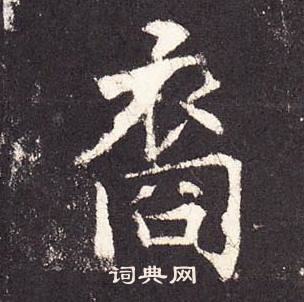 裔
词典网